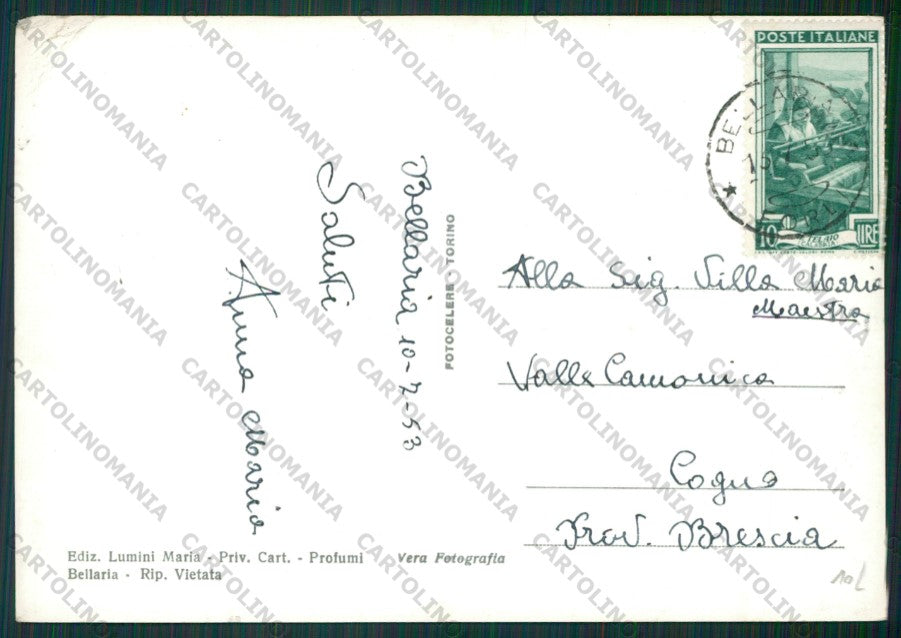 Bellaria 10-7-53
Saluti
Anna Maria
FOTOCELERE - TORINO
POSTE ITALIANE
BELLARIA
10 LIRE
IL TELAIO
Alla Sig. Villa Maria
Maestra
Valle Camonica
Cogno
Prov. Brescia
Ediz. Lumini Maria - Priv. Cart. - Profumi
Bellaria - Rip. Vietata
Vera Fotografia
CARTOLINOMANIA